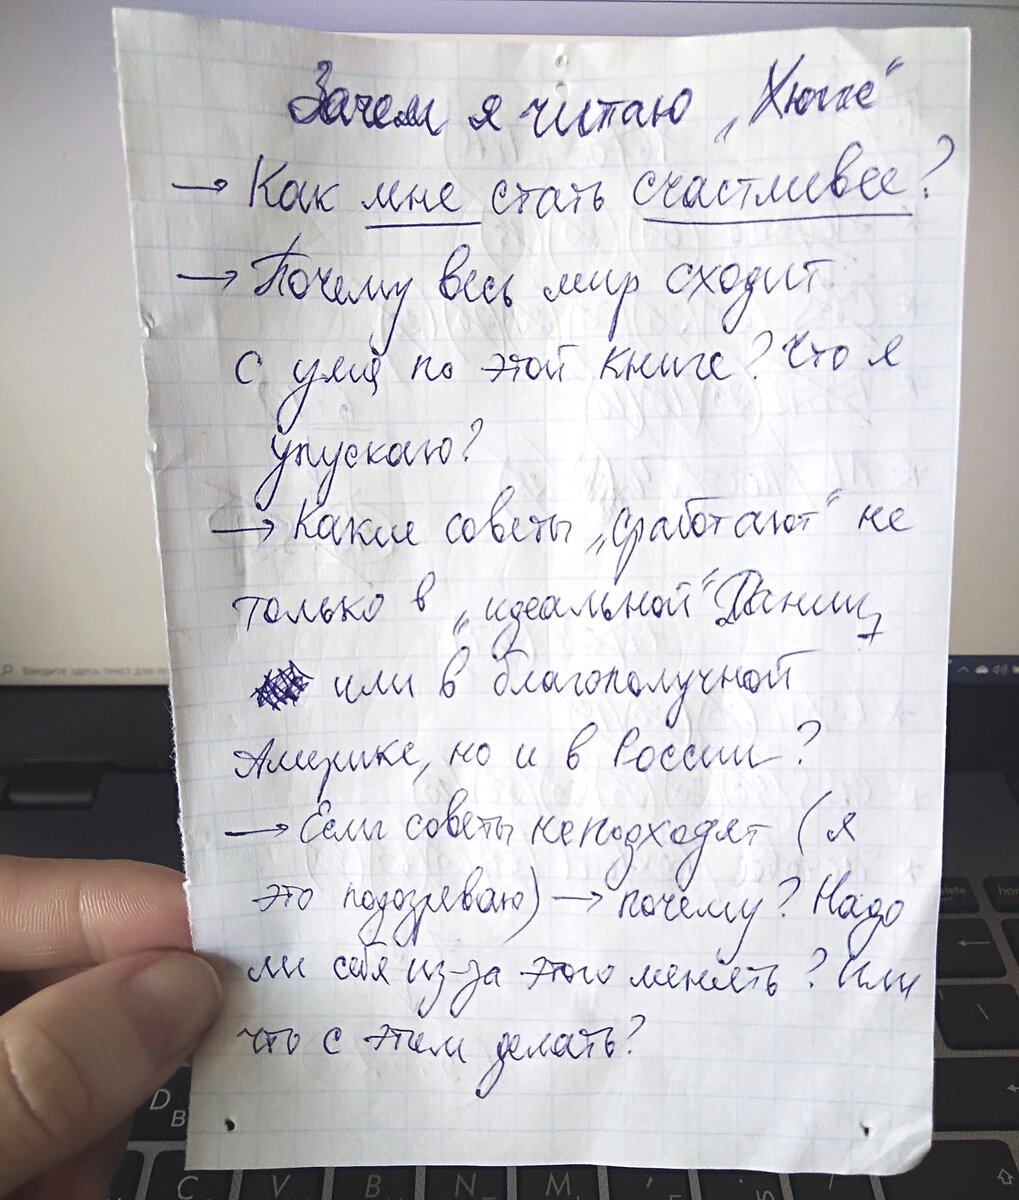 Зачем я читаю „Хюгге“
→ Как мне стать счастливее?
→ Почему весь мир сходит
с ума по этой книге? Что я
упускаю?
→ Какие советы „сработают“ не
только в „идеальной“ Дании,
или в благополучной
Америке, но и в России?
→ Если советы не подходят (я
это подозреваю) → почему? Надо
ли себя из-за этого менять? Или
что с этим делать?
Введите здесь текст для
home
D
C
V
B
N
M